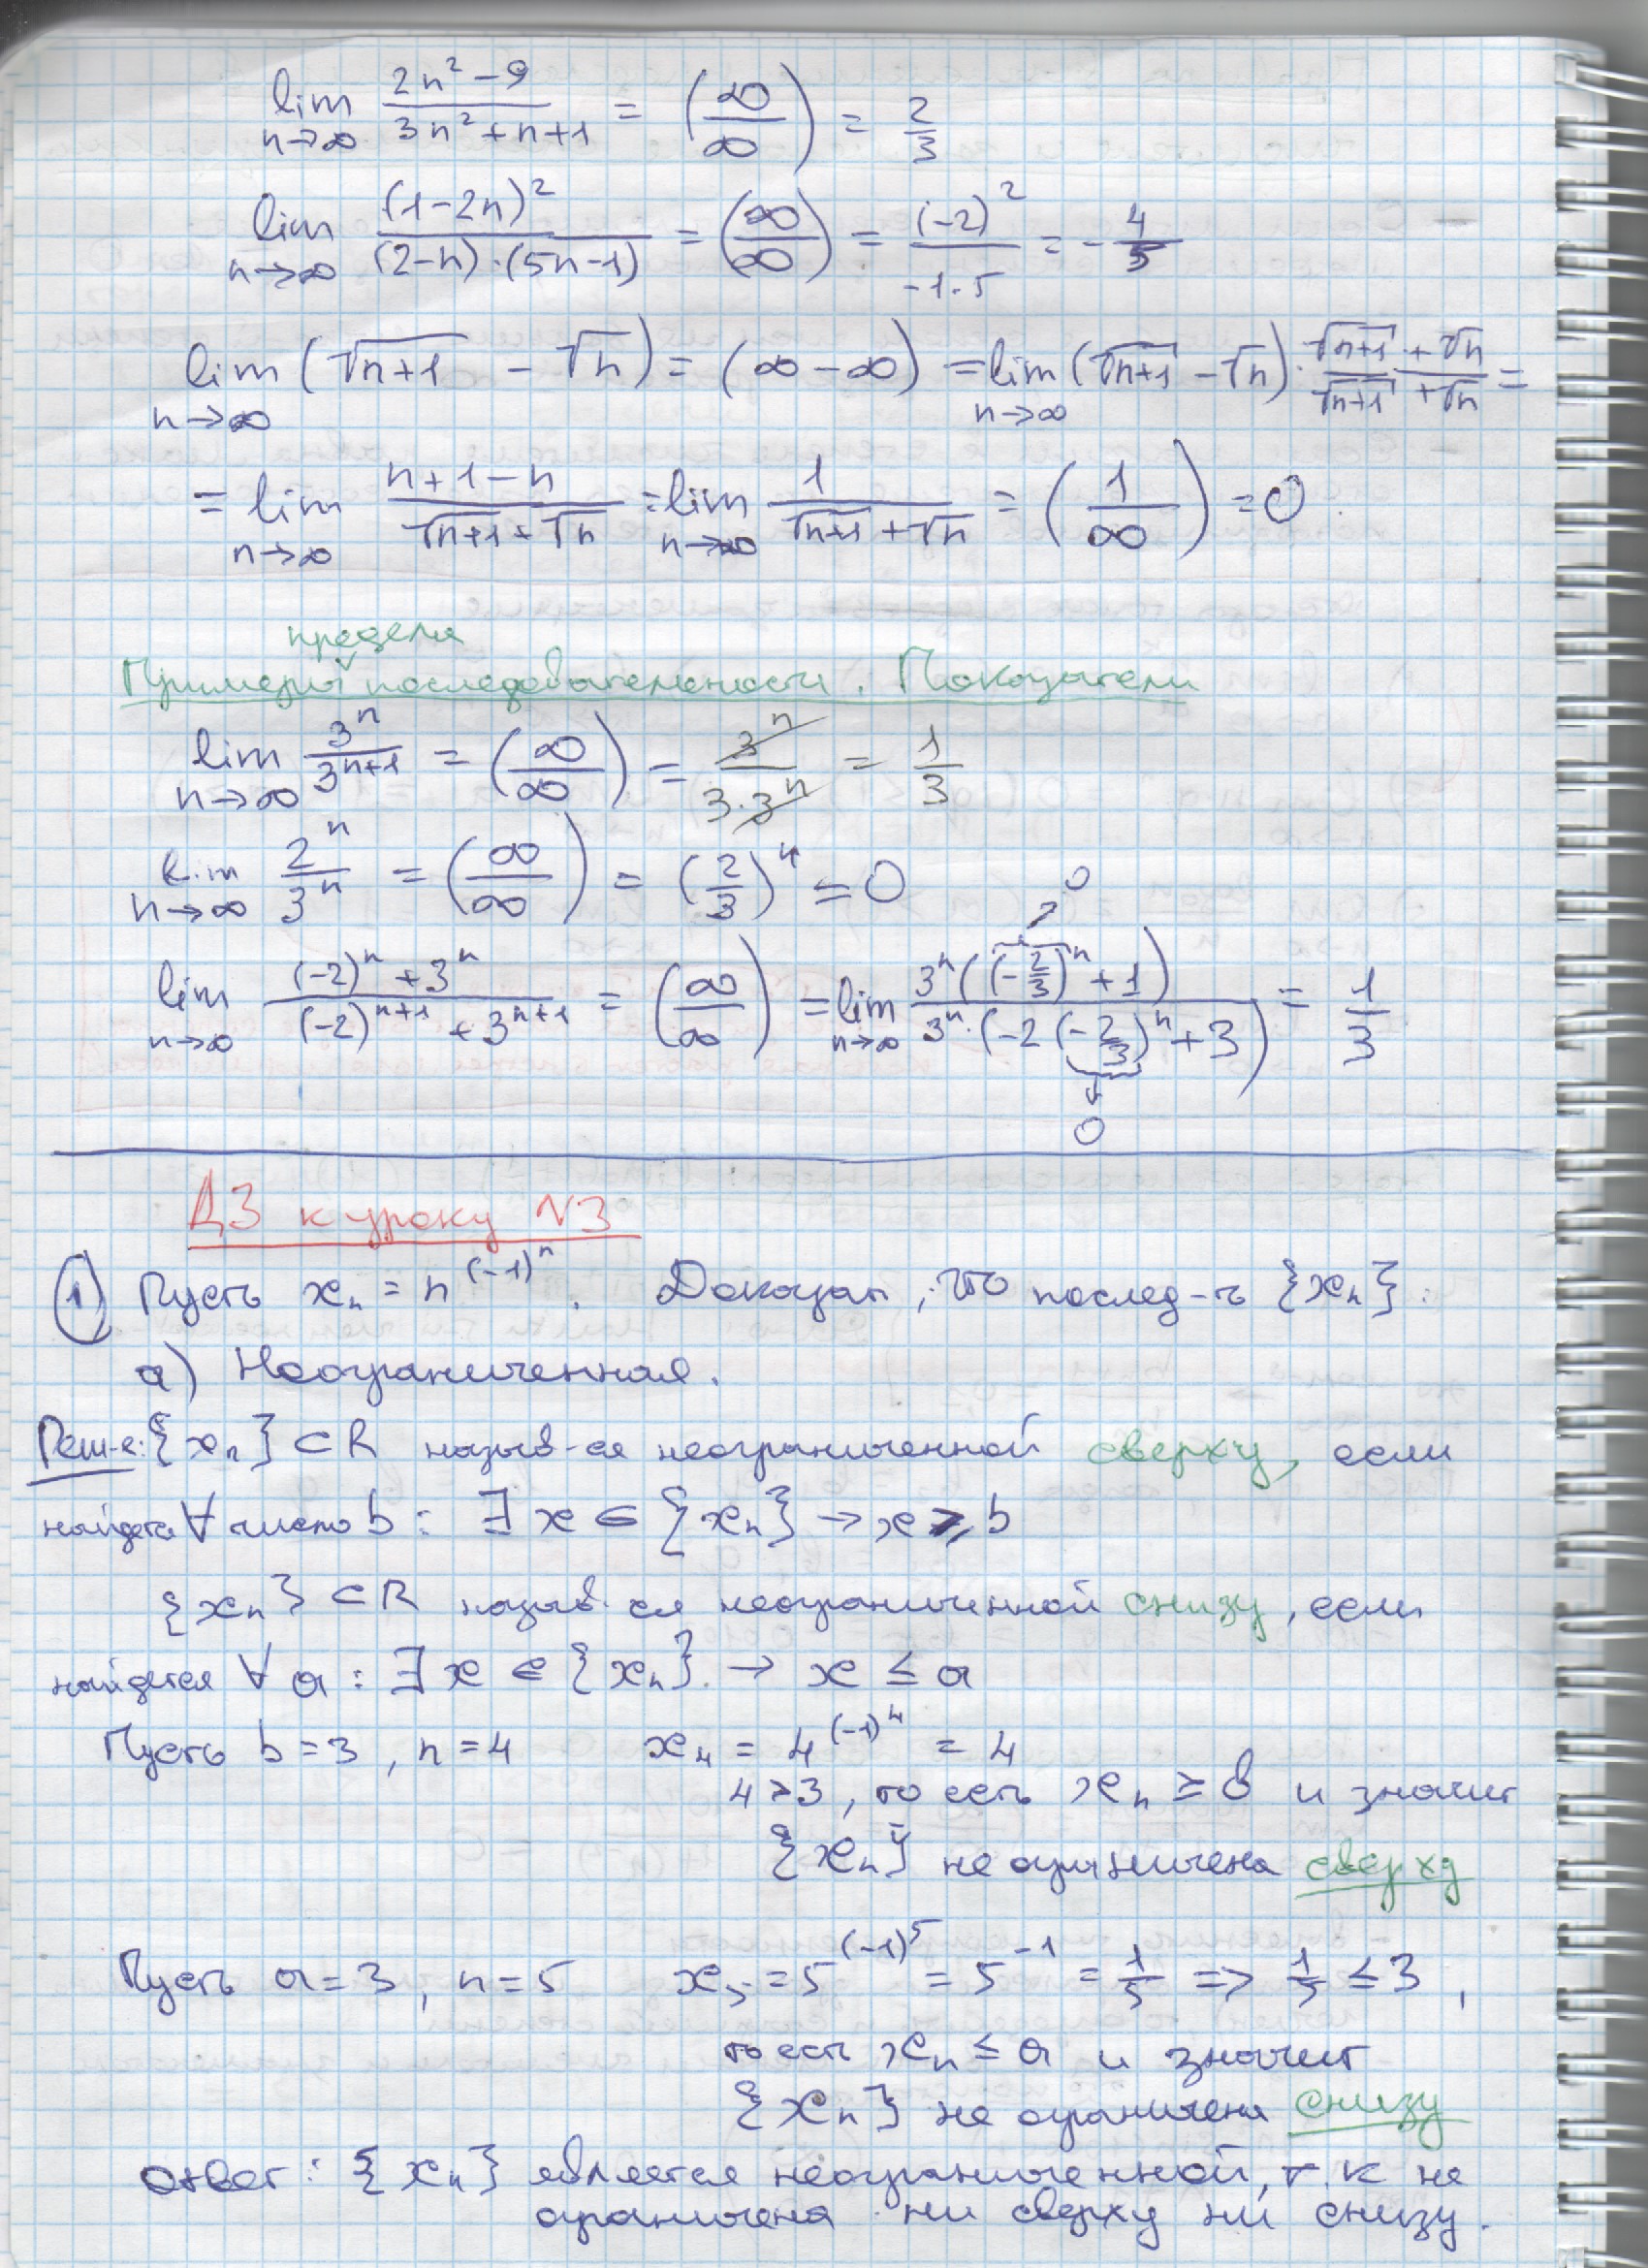 lim n→∞ (2n² − 9)/(3n² + n + 1) = (∞/∞) = 2/3
lim n→∞ (1−2n)²/((2−n)·(5n−1)) = (∞/∞) = (−2)²/(−1·5) = −4/5
lim n→∞ (√(n+1) − √n) = (∞ − ∞) = lim n→∞ (√(n+1) − √n) · (√(n+1) + √n)/(√(n+1) + √n) =
= lim n→∞ (n+1−n)/(√(n+1) + √n) = lim n→∞ 1/(√(n+1) + √n) = (1/∞) = 0.
предела
Примеры последовательности. Показатели
lim n→∞ 3ⁿ/3ⁿ⁺¹ = (∞/∞) = 3ⁿ/(3·3ⁿ) = 1/3
lim n→∞ 2ⁿ/3ⁿ = (∞/∞) = (2/3)ⁿ = 0
lim n→∞ ((−2)ⁿ + 3ⁿ)/((−2)ⁿ⁺¹ + 3ⁿ⁺¹) = (∞/∞) = lim n→∞ 3ⁿ((−2/3)ⁿ + 1)/(3ⁿ·(−2(−2/3)ⁿ + 3)) = 1/3
→ 0
→ 0
ДЗ к уроку N3
① Пусть xₙ = n^(−1)ⁿ. Доказать, что послед-ть {xₙ}:
а) Неограниченная.
Реш-е: {xₙ} ⊂ R назыв-ся неограниченной сверху, если
найдется ∀ число b: ∃ x ∈ {xₙ} → x ≥ b
{xₙ} ⊂ R назыв-ся неограниченной снизу, если
найдется ∀ a: ∃ x ∈ {xₙ} → x ≤ a
Пусть b = 3, n = 4 x₄ = 4^(−1)⁴ = 4
4 > 3, то есть xₙ ≥ b и значит
{xₙ} не ограничена сверху
Пусть a = 3, n = 5 x₅ = 5^(−1)⁵ = 5⁻¹ = 1/5 => 1/5 ≤ 3,
то есть xₙ ≤ a и значит
{xₙ} не ограничена снизу
Ответ: {xₙ} является неограниченной, т.к не
ограничена ни сверху ни снизу.